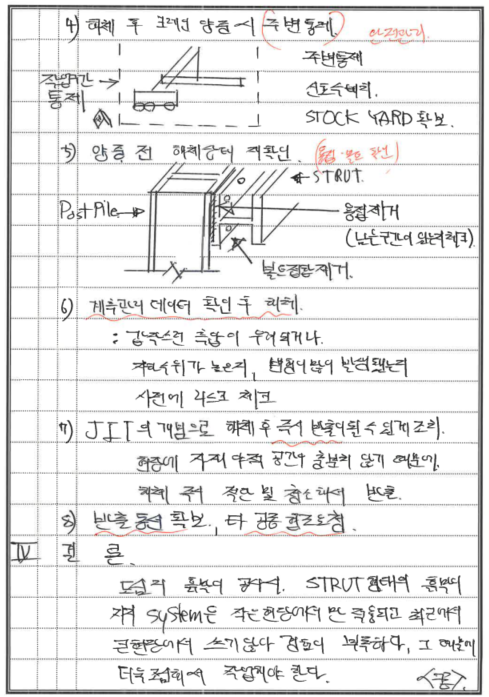 4) 해체 후 크레인 양중시 (주변통제) 안전관리
작업구간 통제
주변통제
신호수배치.
STOCK YARD 확보.
5) 양중 전 해체상태 재확인. (용접·볼트 확인)
STRUT.
Post Pile
용접제거
(남은구간이 있는지 체크)
볼트접합제거.
6) 계측관리 데이터 확인 후 해체.
: 갑작스런 측압이 우려되거나.
지하수위가 높은지, 변형이 많이 발생됐는지
사전에 리스크 체크
7) JIT의 개념으로 해체 후 즉시 반출이 될 수 있게 조치.
현장에 자재 야적 공간이 충분치 않기 때문에.
해체 즉시 절단 및 하여 반출.
8) 반출 동선 확보, 타 공종 협조요청.
IV 결 론.
도심지 흙막이 공사시. STRUT 형태의 흙막이
지지 system은 작은현장에서만 적용되고 최근에서
큰현장에서 쓰기 않다 검토이 부족하다, 그 때문에
더욱 조심해서 작업해야 한다. <끝>.